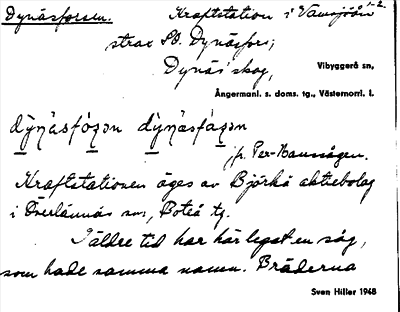 Dynäsforsen. Kraftstation i Vamsjöån 1-2
strax SO. Dynäsfors;
Dynäs' skog,
Vibyggerå sn,
Ångermanl. s. doms. tg., Västernorrl. l.
dỳnäsfo̱ṣən dỳnäsfaṣən
fr. Per
Kraftstationen äges av Björkå aktiebolag
i Överlännäs sn, Boteå tg.
I äldre tid har här legat en såg,
som hade samma namn. Bräderna
Sven Hiller 1948